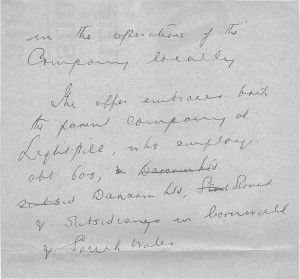 in the operations of the
Company locally
The offer embraces both
the parent company at
Lightpill, who employ
abt 600, & Danarm Ltd
Danarm Ltd, Stroud
& Subsidiarys in Cornwall
& South Wales